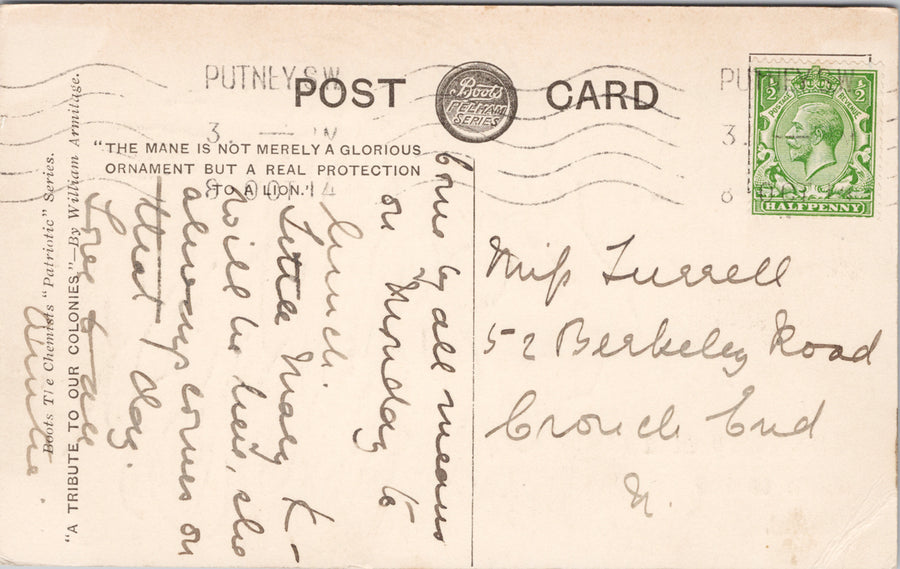 PUTNEY. S.W.
POST CARD
Boots
PELHAM
SERIES
"THE MANE IS NOT MERELY A GLORIOUS
ORNAMENT BUT A REAL PROTECTION
TO A LION."
8 OCT 14
POSTAGE REVENUE
½ ½
HALFPENNY
Come by all means
on Monday to
lunch.
Little Mary K-
will be here, she
always comes on
that day.
Love to all
Miss Turrell
52 Berkeley Road
Crouch End
N.
Boots The Chemists "Patriotic" Series.
"A TRIBUTE TO OUR COLONIES."—By William Armitage.